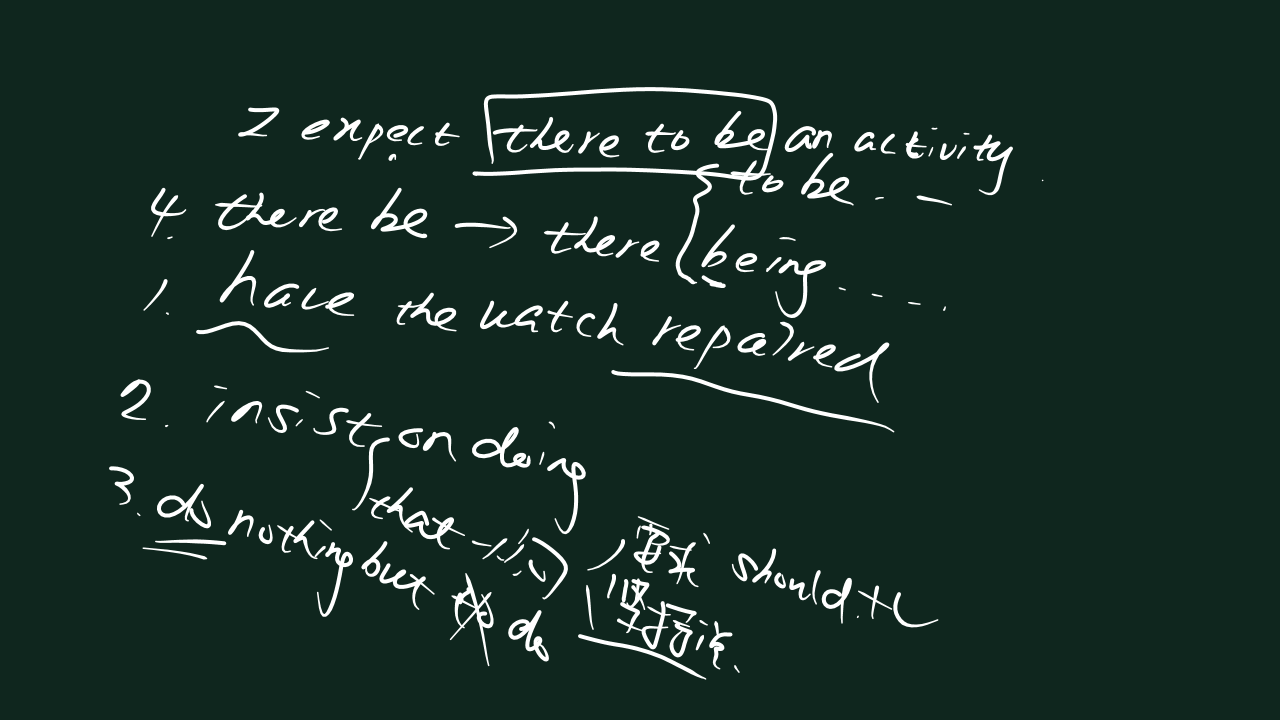 I expect there to be an activity.
4. there be → there { to be . —
being - - - - .
1. have the watch repaired
2. insist on doing
that -
要求 should + V
3. do nothing but to do
坚持说.